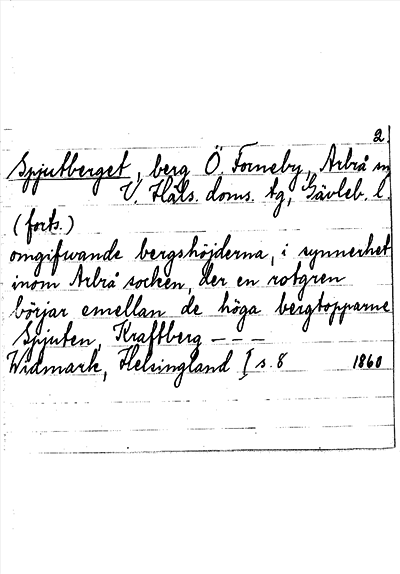 2.
Spjutberget, berg Ö. Forneby, Arbrå sn
V. Häls. doms. tg, Gävleb. l.
(forts.)
omgifwande bergshöjderna, i synnerhet
inom Arbrå socken, der en rotgren
börjar emellan de höga bergtopparne
Spjuten, Kraftberg - - -
Widmark, Helsingland I s. 8 1860